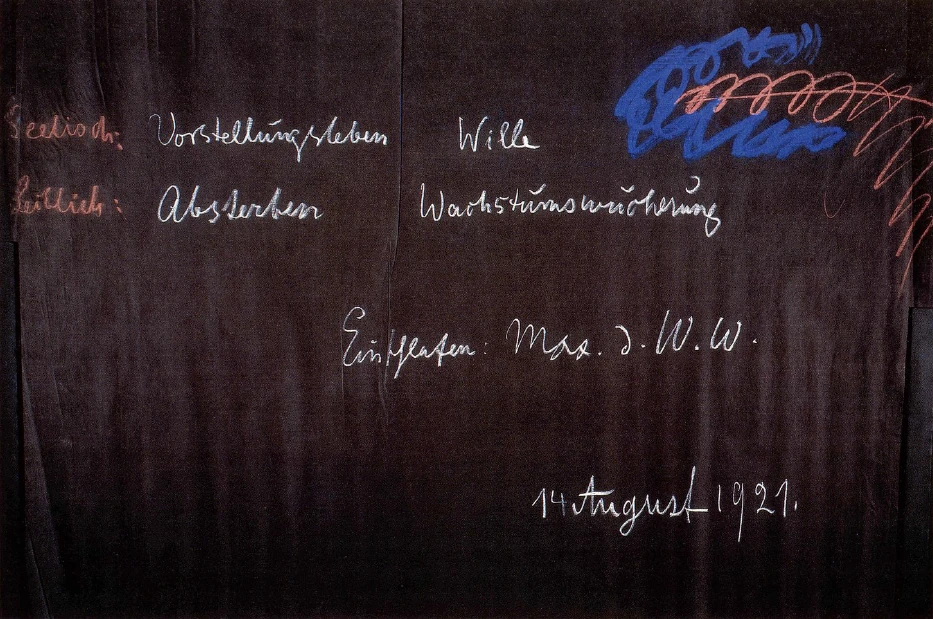 Seelisch: Vorstellungsleben Wille
Leiblich: Absterben Wachstumswucherung
Einschlafen: Max. d. W. W.
14 August 1921.